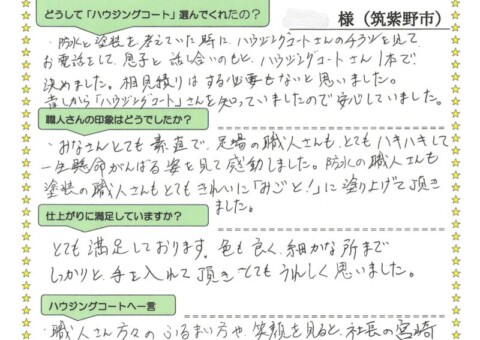 どうして「ハウジングコート」選んでくれたの？
様（筑紫野市）
・防水と塗装を考えていた時に、ハウジングコートさんのチラシを見て
お電話をして、息子と話し合いのもと、ハウジングコートさん1本で
決めました。相見積りはする必要もないと思いました。
昔しから「ハウジングコート」さんを知っていましたので安心していました。
職人さんの印象はどうでしたか？
・みなさんとても素直で、足場の職人さんも、とてもハキハキして
一生懸命がんばる姿を見て感動しました。防水の職人さんも
塗装の職人さんもとてもきれいに「みごと！」に塗り上げて頂き
ました。
仕上がりに満足していますか？
とても満足しております。色も良く、細かな所まで
しっかりと、手を入れて頂きとてもうれしく思いました。
ハウジングコートへ一言
・職人さん方々のふるまい方や、笑顔を見ると、社長の宮崎